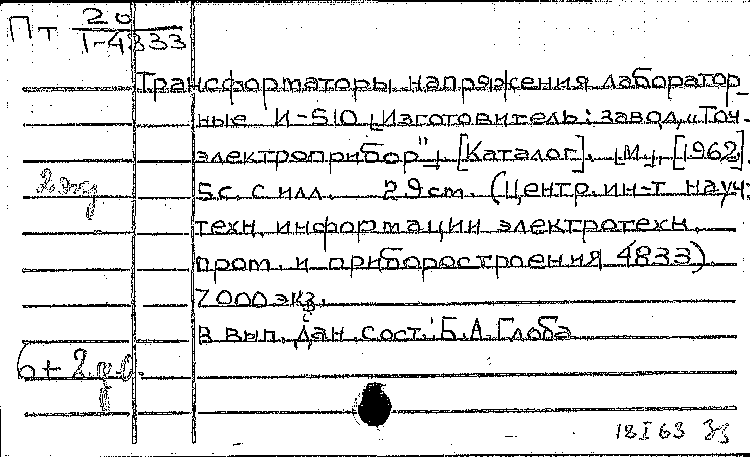 Пт 20
1-4833
Трансформаторы напряжения лаборатор-
ные И-510 [Изготовитель: завод „Точ-
электроприбор"] [Каталог]. [М.], [1962].
5с. с илл. 29 cm. (Центр. ин-т науч.
2 экз
техн. информации электротехн.
пром. и приборостроения 4833)
7000 экз.
В вып. дан. сост.: Б.А. Глоба
18 I 63